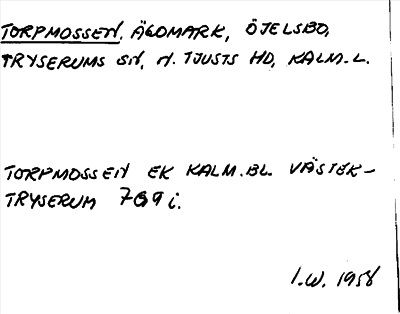 TORPMOSSEN, ÄGOMARK, ÖJELSBO,
TRYSERUMS SN, N. TJUSTS HD, KALM. L.
TORPMOSSEN EK KALM. BL. VÄSTEK-
TRYSERUM 7G9i.
I.W. 1958